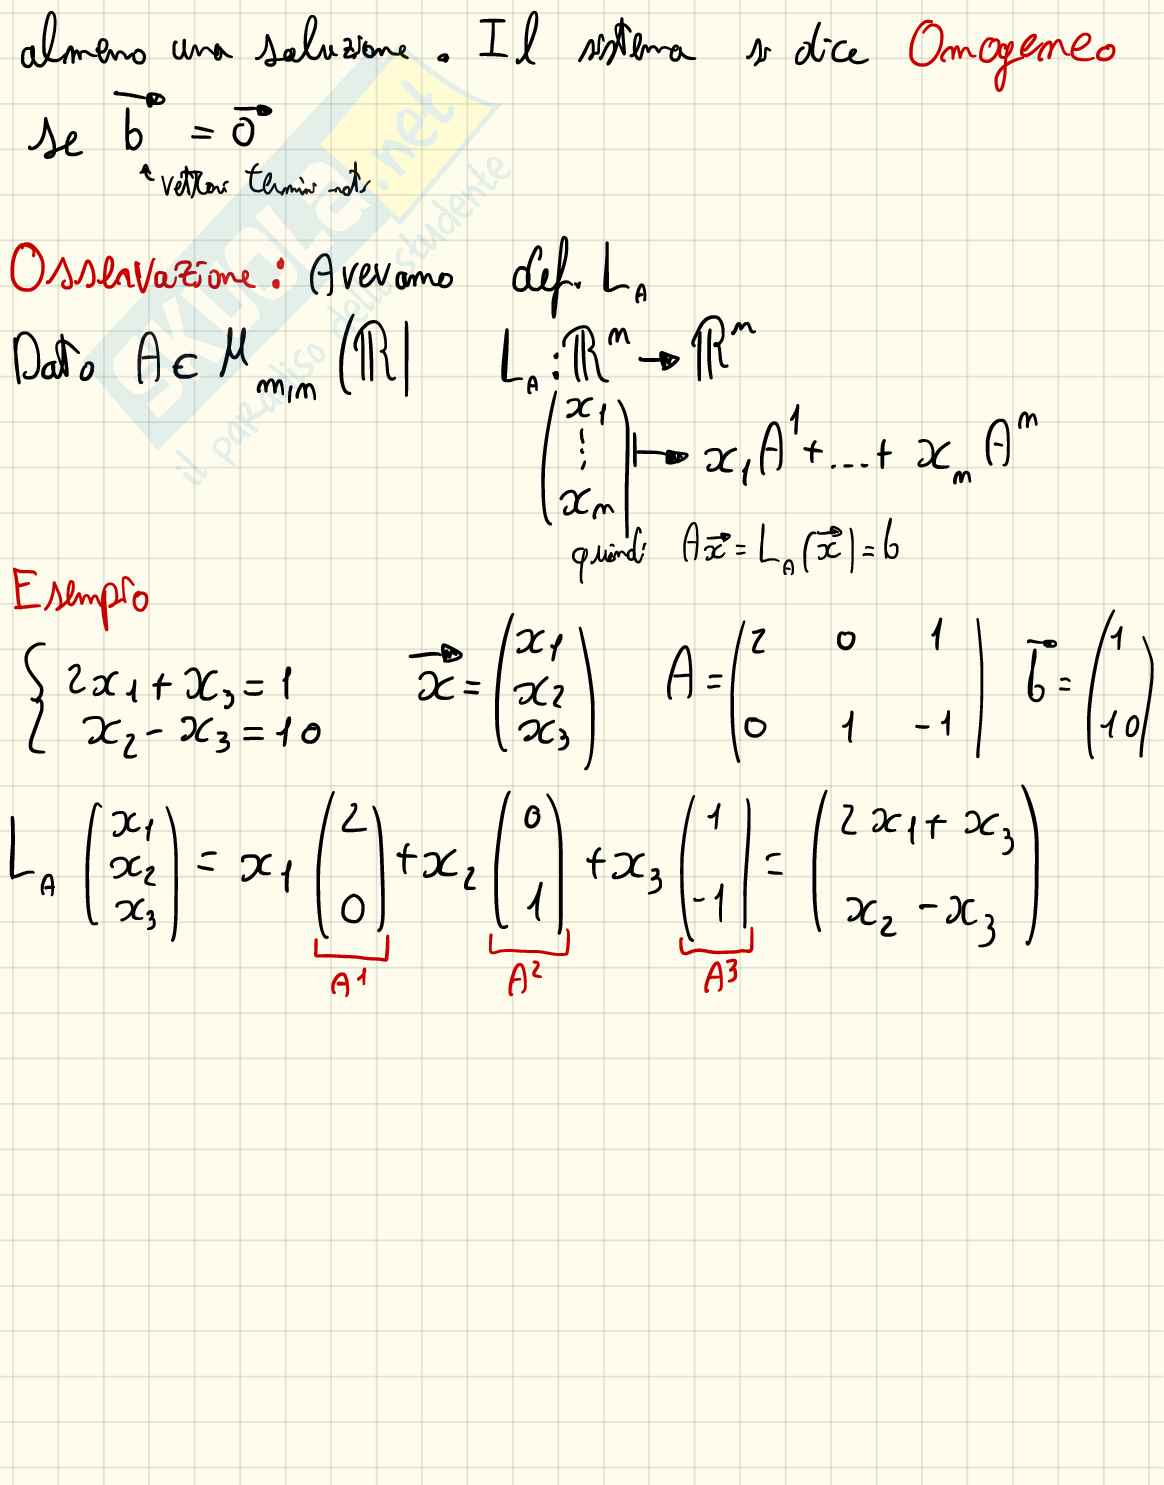 almeno una soluzione. Il sistema si dice Omogeneo
se b⃗ = 0⃗
vettori termini noti
Osservazione: Avevamo def. L_A
Dato A ∈ M_m,n (ℝ) L_A : ℝ^n → ℝ^m
(x_1 ⋮ x_n) ↦ x_1 A^1 + ... + x_n A^n
quindi Ax⃗ = L_A(x⃗) = b
Esempio
{ 2x_1 + x_3 = 1
x_2 - x_3 = 10
x⃗ = (x_1 x_2 x_3) A = (2 0 1
0 1 -1) b⃗ = (1
10)
L_A (x_1 x_2 x_3) = x_1 (2 0) + x_2 (0 1) + x_3 (1 -1) = (2x_1 + x_3
x_2 - x_3)
A^1 A^2 A^3
SKUOLA.net
il paradiso dello studente